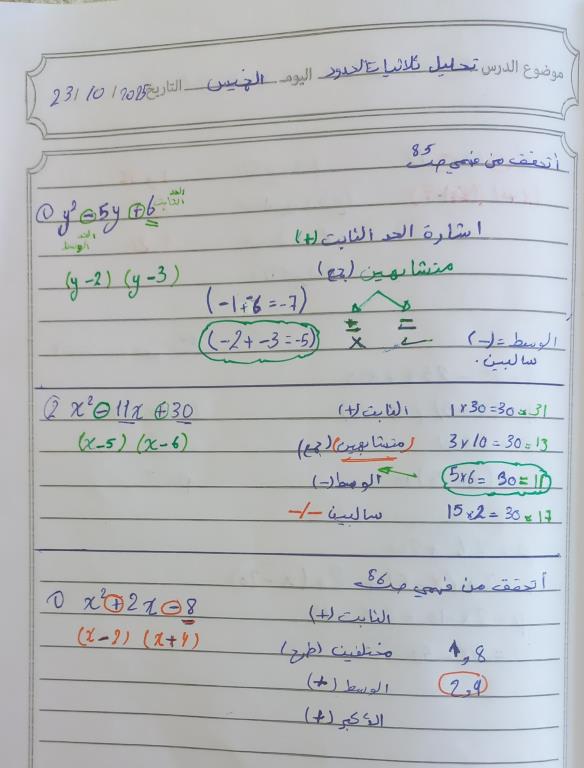 موضوع الدرس تحليل ثلاثيات الحدود اليوم الخميس التاريخ 23/10/2025
أتحقق من فهمي صـ 85
① y² − 5y + 6 الحد الثابت
الحد الوسط
اشارة الحد الثابت (+)
متشابهين (جمع)
(y-2) (y-3)
(-1+-6=-7)
+ -
(-2+-3=-5)
الوسط = (-)
سالبين.
② x² − 11x + 30 الثابت (+) 1x30=30=31
(x-5) (x-6) (متشابهين) (جمع) 3x10=30=13
الوسط (-) 5x6=30=11
سالبين -/- 15x2=30=17
أتحقق من فهمي صـ 86
① x² + 2x − 8 الثابت (+)
(x-2) (x+4) مختلفين (طرح) 1,8
الوسط (+) 2,4
الأكبر (+)